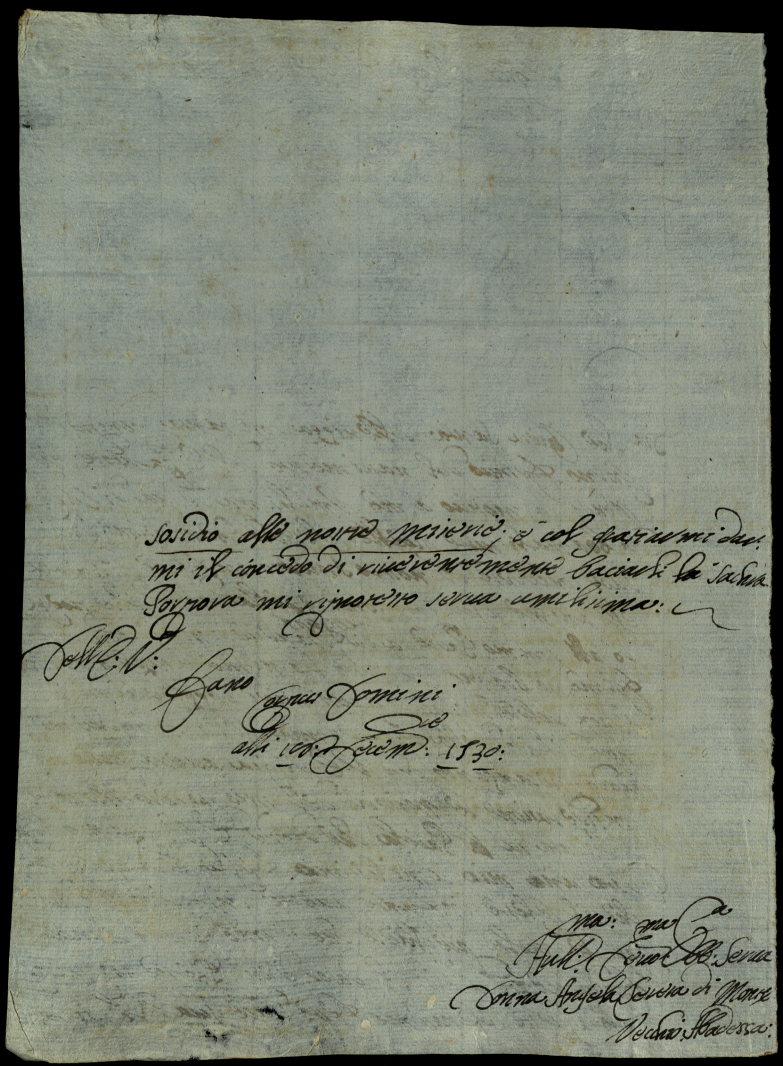 sosidio alle nostre miserie; e col graziarmi dar
mi il concedo di riverentemente baciarli la Sacra
Porpora mi riprotesto serva umilisima:
Dell'E: V:
Fano Corpus Domini
alli 10: Xcem: 1730:
ma: ma
Hull: Serva
Donna Angela Severa di Monte
Vechio Abadessa: